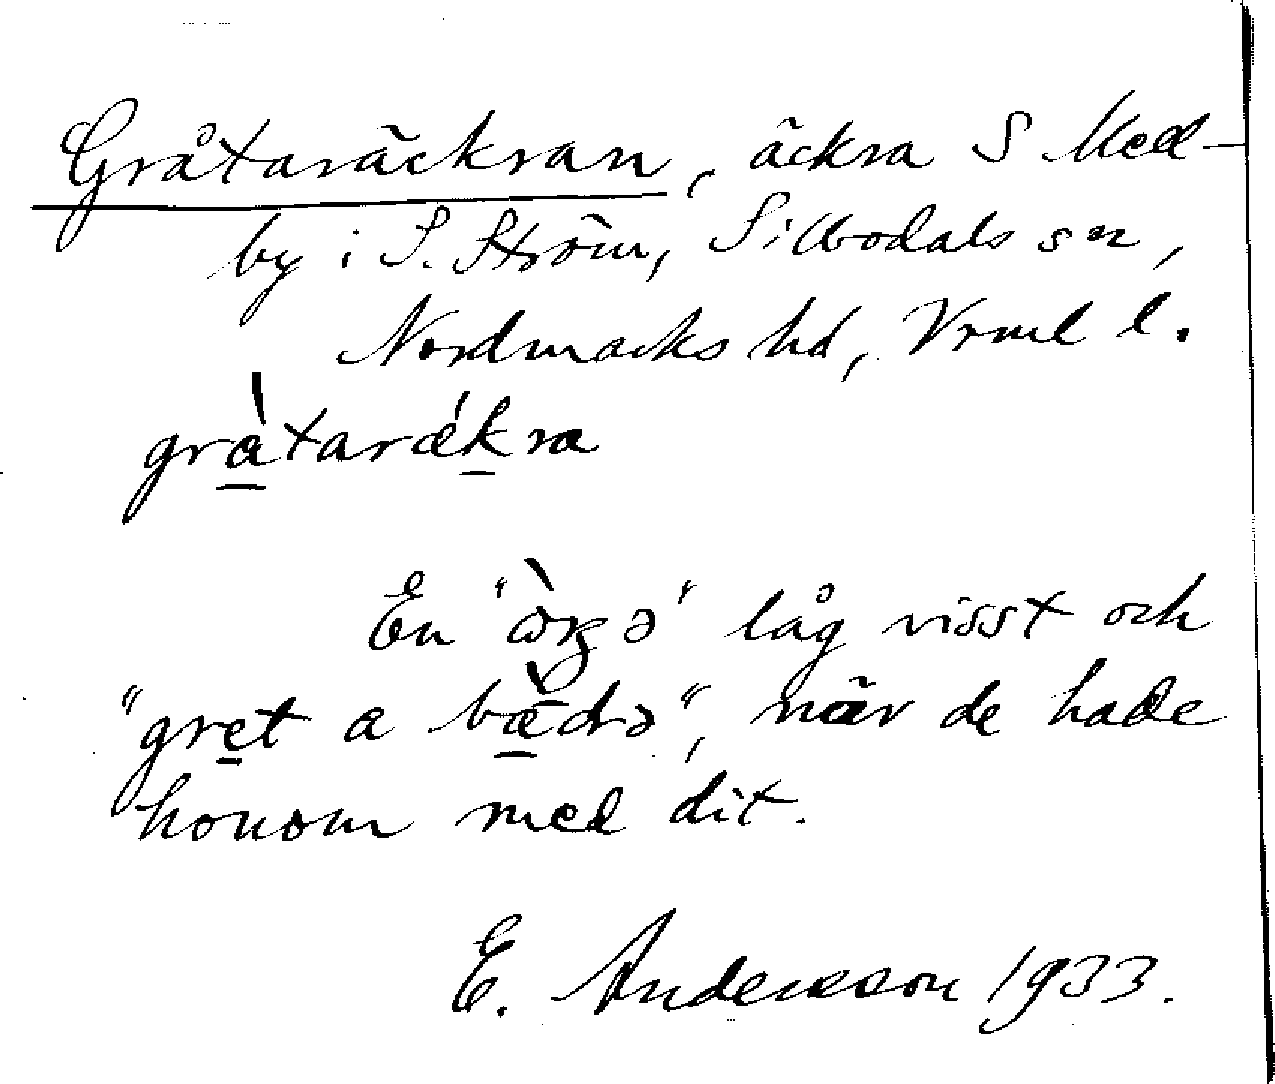 Gråtaräckran, äckra S Med-
by i S. Ström, Silbodals sn,
Nordmarks hd, Vrml l.
gràtarǽkra
En " " låg visst och
"gret a bæ̀drə", när de hade
honom med dit.
E. Andersson 1933.